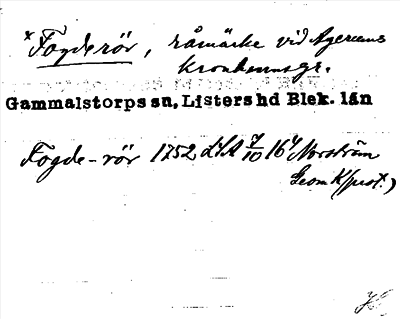 *Fogderör, råmärke vid Agerums
kronhemmsgr.
Gammalstorps sn, Listers hd Blek. län
Fogde-rör 1752 LSA 7/10 16 4 Norström
Geom K/just.)